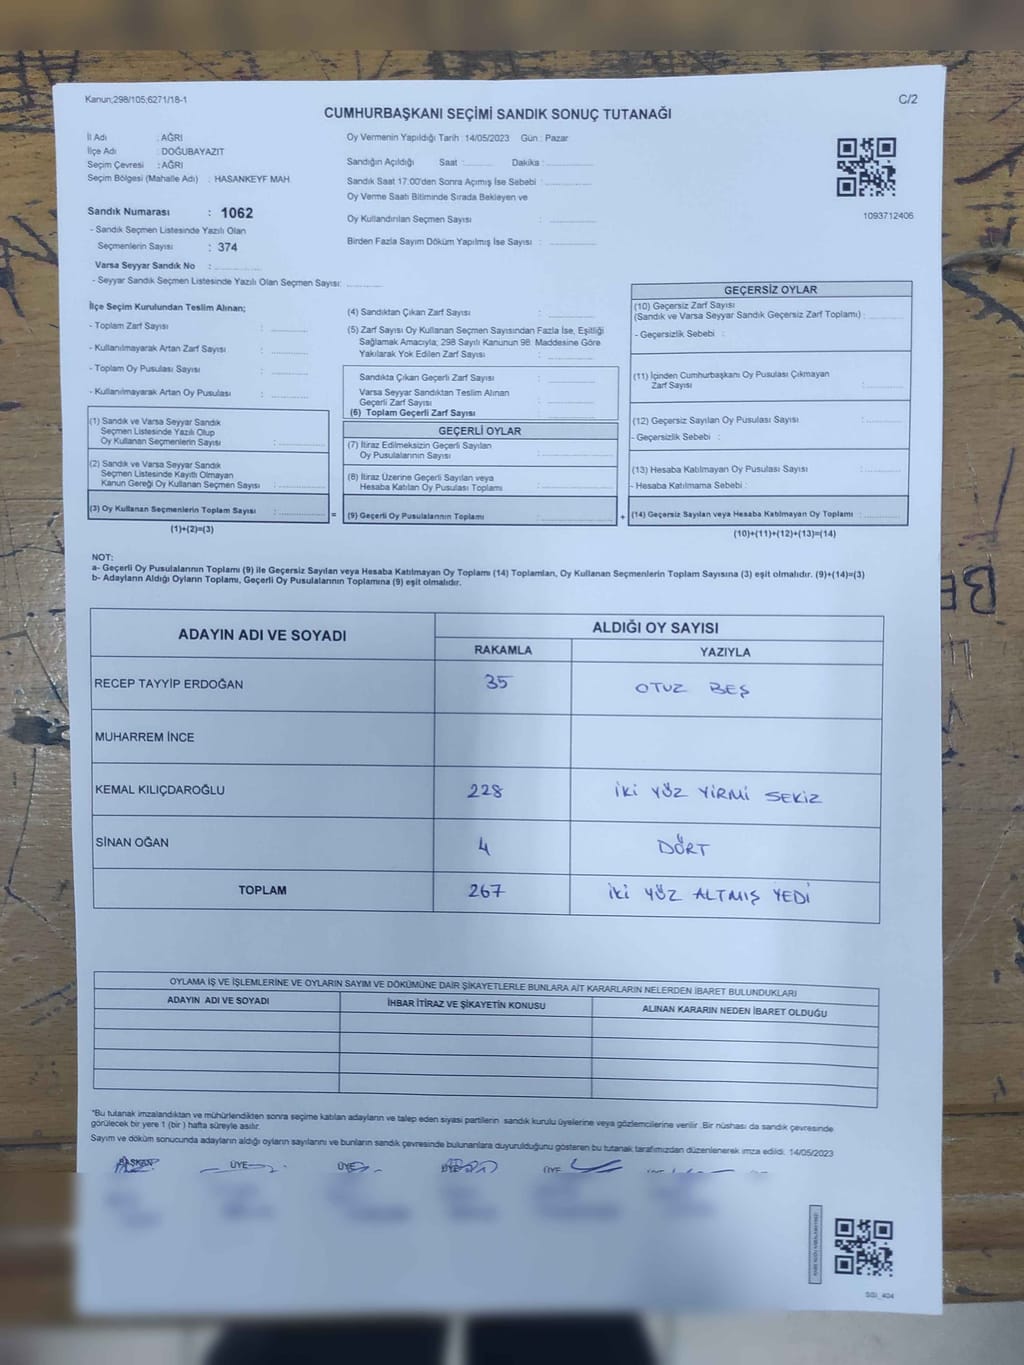 Kanun;298/105;6271/18-1
C/2
CUMHURBAŞKANI SEÇİMİ SANDIK SONUÇ TUTANAĞI
İl Adı : AĞRI
İlçe Adı : DOĞUBAYAZIT
Seçim Çevresi : AĞRI
Seçim Bölgesi (Mahalle Adı) : HASANKEYF MAH.
Sandık Numarası : 1062
- Sandık Seçmen Listesinde Yazılı Olan
Seçmenlerin Sayısı : 374
Varsa Seyyar Sandık No :
- Seyyar Sandık Seçmen Listesinde Yazılı Olan Seçmen Sayısı:
Oy Vermenin Yapıldığı Tarih : 14/05/2023 Gün : Pazar
Sandığın Açıldığı Saat : Dakika :
Sandık Saat 17.00'den Sonra Açımış İse Sebebi :
Oy Verme Saati Bitiminde Sırada Bekleyen ve
Oy Kullandırılan Seçmen Sayısı :
Birden Fazla Sayım Döküm Yapılmış İse Sayısı :
1093712406
İlçe Seçim Kurulundan Teslim Alınan;
- Toplam Zarf Sayısı :
- Kullanılmayarak Artan Zarf Sayısı :
- Toplam Oy Pusulası Sayısı :
- Kullanılmayarak Artan Oy Pusulası :
(1) Sandık ve Varsa Seyyar Sandık
Seçmen Listesinde Yazılı Olup
Oy Kullanan Seçmenlerin Sayısı :
(2) Sandık ve Varsa Seyyar Sandık
Seçmen Listesinde Kayıtlı Olmayan
Kanun Gereği Oy Kullanan Seçmen Sayısı :
(3) Oy Kullanan Seçmenlerin Toplam Sayısı :
(1)+(2)=(3)
(4) Sandıktan Çıkan Zarf Sayısı :
(5) Zarf Sayısı Oy Kullanan Seçmen Sayısından Fazla İse, Eşitliği
Sağlamak Amacıyla; 298 Sayılı Kanunun 98. Maddesine Göre
Yakılarak Yok Edilen Zarf Sayısı :
Sandıkta Çıkan Geçerli Zarf Sayısı :
Varsa Seyyar Sandıktan Teslim Alınan
Geçerli Zarf Sayısı :
(6) Toplam Geçerli Zarf Sayısı :
GEÇERLİ OYLAR
(7) İtiraz Edilmeksizin Geçerli Sayılan
Oy Pusulalarının Sayısı :
(8) İtiraz Üzerine Geçerli Sayılan veya
Hesaba Katılan Oy Pusulası Toplamı :
= (9) Geçerli Oy Pusulalarının Toplamı : +
GEÇERSİZ OYLAR
(10) Geçersiz Zarf Sayısı
(Sandık ve Varsa Seyyar Sandık Geçersiz Zarf Toplamı) :
- Geçersizlik Sebebi :
(11) İçinden Cumhurbaşkanı Oy Pusulası Çıkmayan
Zarf Sayısı :
(12) Geçersiz Sayılan Oy Pusulası Sayısı :
- Geçersizlik Sebebi :
(13) Hesaba Katılmayan Oy Pusulası Sayısı :
- Hesaba Katılmama Sebebi :
(14) Geçersiz Sayılan veya Hesaba Katılmayan Oy Toplamı :
(10)+(11)+(12)+(13)=(14)
NOT:
a- Geçerli Oy Pusulalarının Toplamı (9) ile Geçersiz Sayılan veya Hesaba Katılmayan Oy Toplamı (14) Toplamları, Oy Kullanan Seçmenlerin Toplam Sayısına (3) eşit olmalıdır. (9)+(14)=(3)
b- Adayların Aldığı Oyların Toplamı, Geçerli Oy Pusulalarının Toplamına (9) eşit olmalıdır.
ADAYIN ADI VE SOYADI
ALDIĞI OY SAYISI
RAKAMLA YAZIYLA
RECEP TAYYİP ERDOĞAN 35 OTUZ BEŞ
MUHARREM İNCE
KEMAL KILIÇDAROĞLU 228 İKİ YÜZ YİRMİ SEKİZ
SİNAN OĞAN 4 DÖRT
TOPLAM 267 İKİ YÜZ ALTMIŞ YEDİ
OYLAMA İŞ VE İŞLEMLERİNE VE OYLARIN SAYIM VE DÖKÜMÜNE DAİR ŞİKAYETLERLE BUNLARA AİT KARARLARIN NELERDEN İBARET BULUNDUKLARI
ADAYIN ADI VE SOYADI İHBAR İTİRAZ VE ŞİKAYETİN KONUSU ALINAN KARARIN NEDEN İBARET OLDUĞU
*Bu tutanak imzalandıktan ve mühürlendikten sonra seçime katılan adayların ve talep eden siyasi partilerin sandık kurulu üyelerine veya gözlemcilerine verilir. Bir nüshası da sandık çevresinde
görülecek bir yere 1 (bir) hafta süreyle asılır.
Sayım ve döküm sonucunda adayların aldığı oyların sayılarını ve bunların sandık çevresinde bulunanlara duyurulduğunu gösteren bu tutanak tarafımızdan düzenlenerek imza edildi. 14/05/2023
BAŞKAN ÜYE ÜYE ÜYE ÜYE